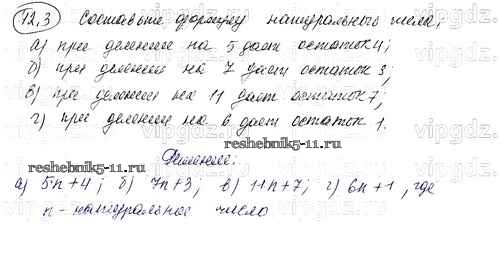 12.3 Составьте формулу натурального числа,
а) при делении на 5 даёт остаток 4;
б) при делении на 7 даёт остаток 3;
в) при делении на 11 даёт остаток 7;
г) при делении на 6 даёт остаток 1.
Решение:
а) 5n+4; б) 7n+3; в) 11n+7; г) 6n+1, где
n - натуральное число
vipgdz.ru
reshebnik5-11.ru
reshebnik5-11.ru